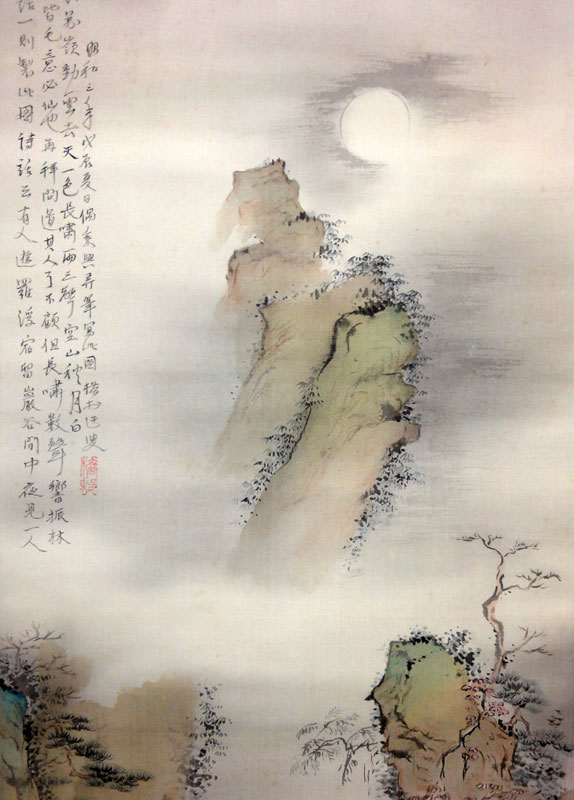 話一則製此圖詩話云有人遊羅浮宿留巖谷間中夜見一人
皆毛意必仙也再拜問道其人了不顧但長嘯數聲響振林
萬嶺動雲去天一色長嘯兩三聲空山秋月白
昭和三年戊辰夏日偶乘興弄筆寫此圖橋村迂叟